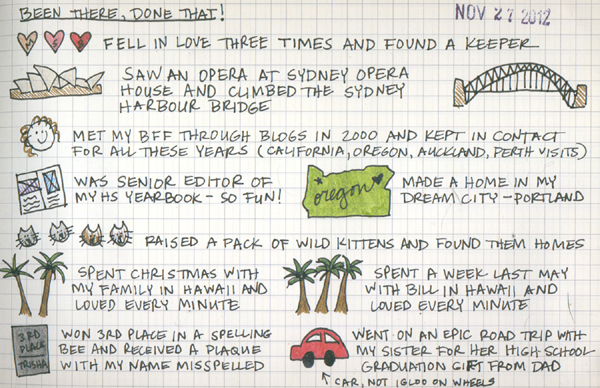 BEEN THERE, DONE THAT!
NOV 27 2012
FELL IN LOVE THREE TIMES AND FOUND A KEEPER
SAW AN OPERA AT SYDNEY OPERA
HOUSE AND CLIMBED THE SYDNEY
HARBOUR BRIDGE
MET MY BFF THROUGH BLOGS IN 2000 AND KEPT IN CONTACT
FOR ALL THESE YEARS (CALIFORNIA, OREGON, AUCKLAND, PERTH VISITS)
WAS SENIOR EDITOR OF
MY HS YEARBOOK - SO FUN!
oregon
MADE A HOME IN MY
DREAM CITY - PORTLAND
RAISED A PACK OF WILD KITTENS AND FOUND THEM HOMES
SPENT CHRISTMAS WITH
MY FAMILY IN HAWAII AND
LOVED EVERY MINUTE
SPENT A WEEK LAST MAY
WITH BILL IN HAWAII AND
LOVED EVERY MINUTE
3RD
PLACE
TRISHA
WON 3RD PLACE IN A SPELLING
BEE AND RECEIVED A PLAQUE
WITH MY NAME MISSPELLED
WENT ON AN EPIC ROAD TRIP WITH
MY SISTER FOR HER HIGH SCHOOL
GRADUATION GIFT FROM DAD
↑ CAR, NOT IGLOO ON WHEELS